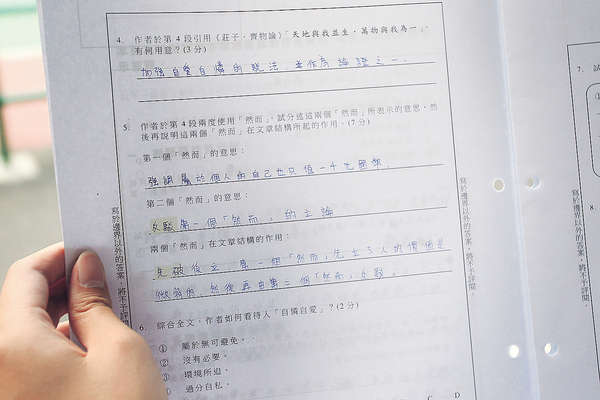 4. 作者於第 4 段引用《莊子·齊物論》「天地與我並生，萬物與我為一」
有何用意？(3 分)
加強自愛自憐的說法，並作為論證之一。
5. 作者於第 4 段兩度使用「然而」，試分述這兩個「然而」所表示的意思，然
後再說明這兩個「然而」在文章結構所起的作用。(7 分)
第一個「然而」的意思：
強調屬於個人的自己也只值
第二個「然而」的意思：
反駁第一個「然而」的立論
兩個「然而」在文章結構的作用：
先破後立，第一個「然而」先立了人的價值是
微弱的，然後再由第二個「然而」反駁。
6. 綜合全文，作者如何看待人「自憐自愛」？(2 分)
① 屬於無可避免。
② 沒有必要。
③ 環境所迫。
過分自私。
C D
寫於邊界以外的答案，將不予評閱。
寫於邊界以外的答案，將不予評閱。
7. 試
8.